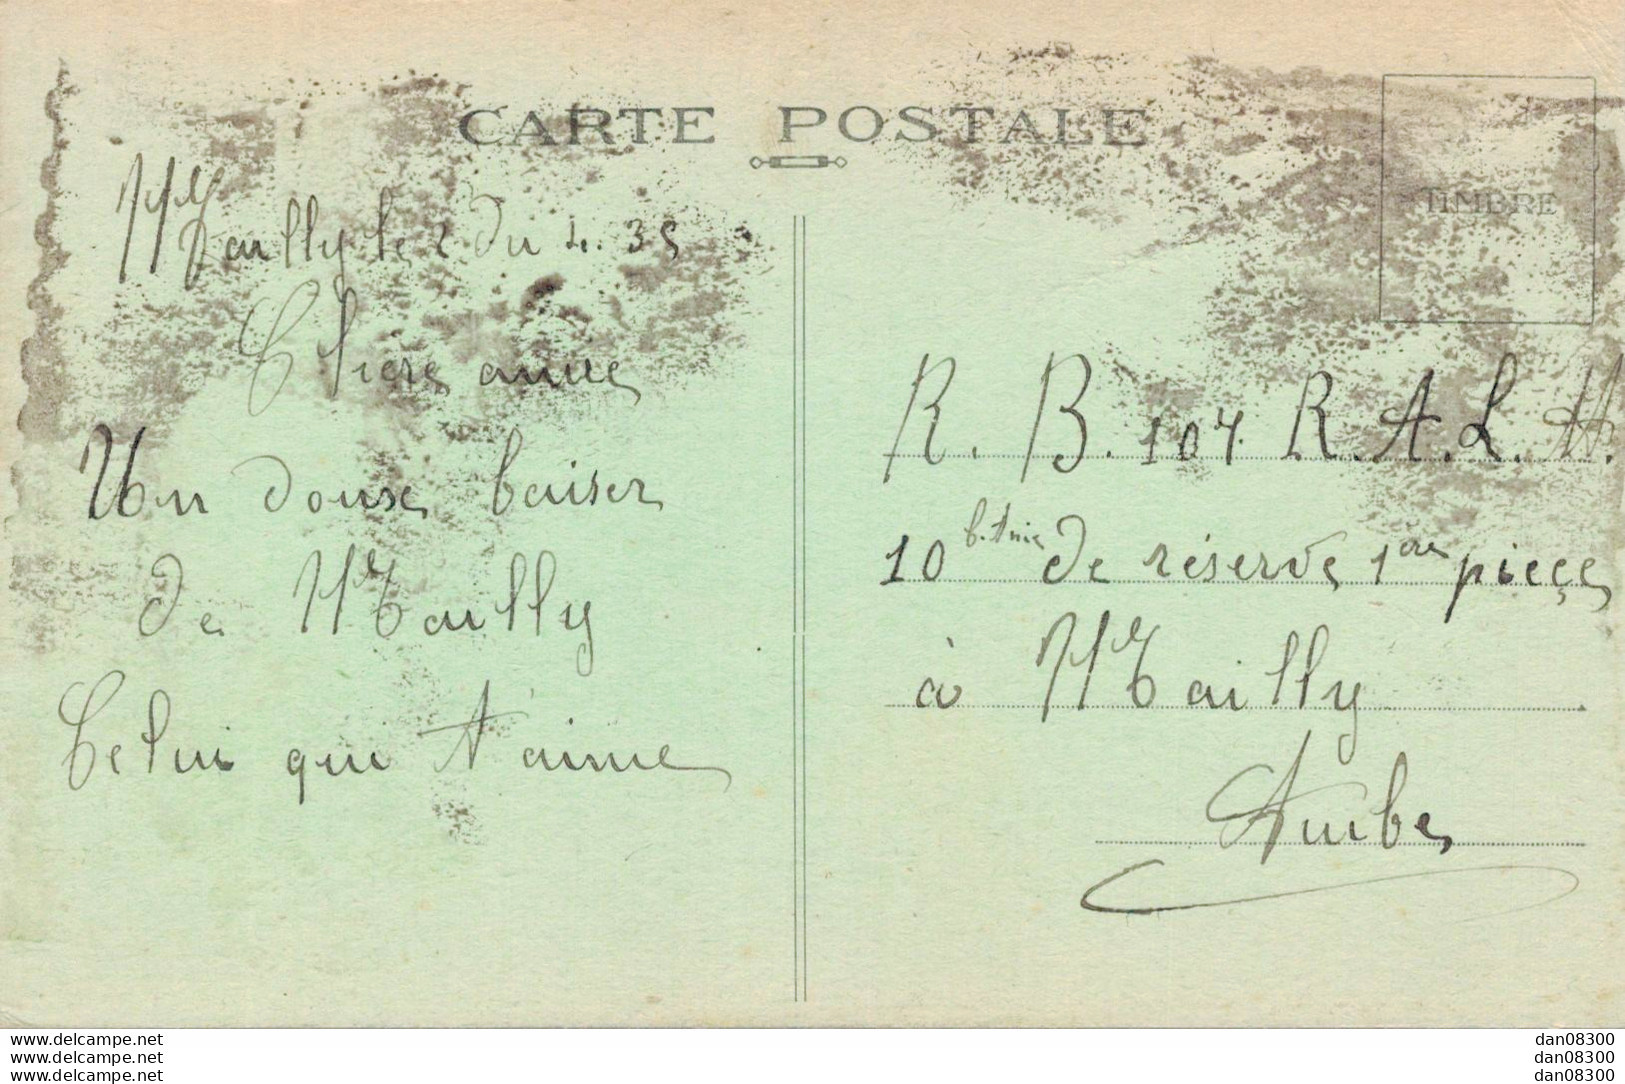 CARTE POSTALE
TIMBRE
Mailly le 2 du 4. 35
Chere amie
Un doux baiser
de Mailly
Celui qui t'aime
R. B. 107 R.A.L.H.
10 b.trie de réserve 1ere pièce
à Mailly
Aube
www.delcampe.net
www.delcampe.net
www.delcampe.net
dan08300
dan08300
dan08300